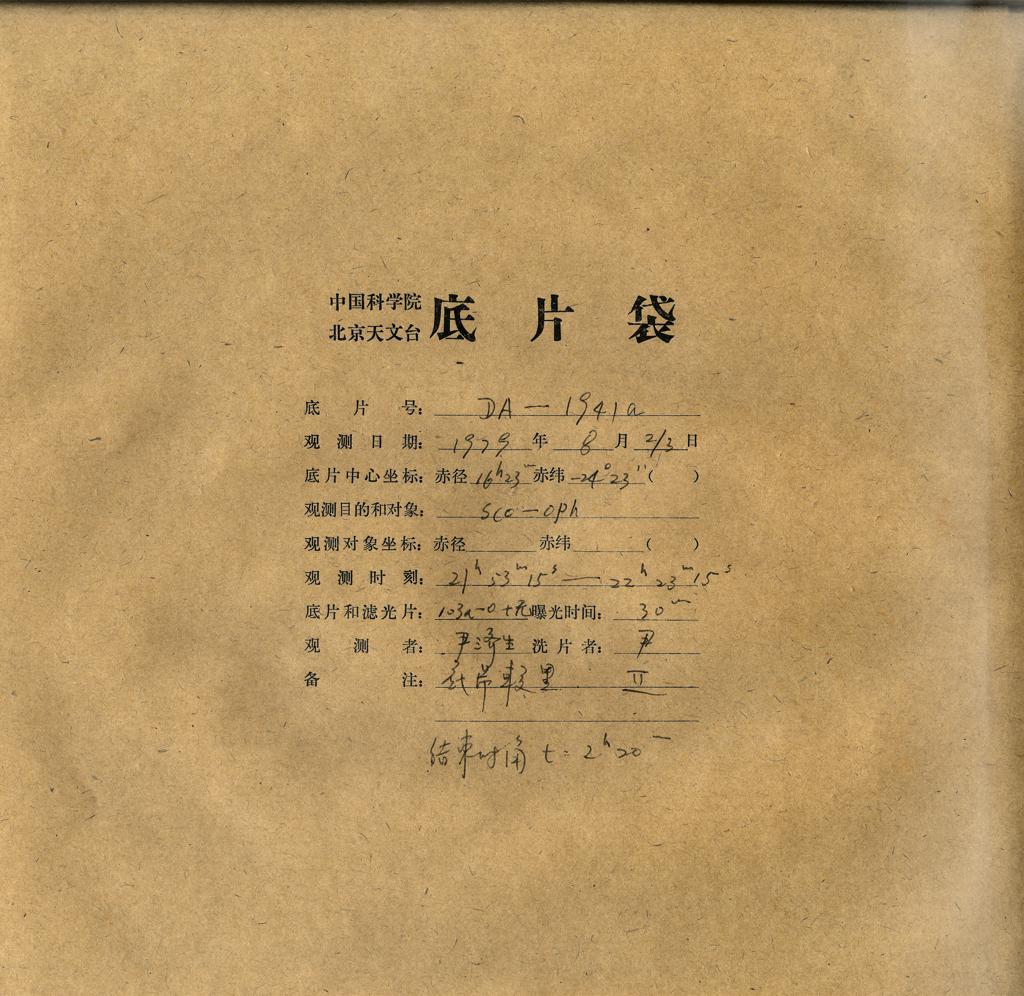 中国科学院
北京天文台 底片袋
底片号: DA—1941a
观测日期: 1979年 8月 2/3日
底片中心坐标: 赤径 16ʰ23ᵐ 赤纬 -24°23" ( )
观测目的和对象: Sco—oph
观测对象坐标: 赤径 赤纬 ( )
观测时刻: 21ʰ53ᵐ15ˢ — 22ʰ23ᵐ15ˢ
底片和滤光片: 103a-0+无 曝光时间: 30ᵐ
观测者: 尹济生 洗片者: 尹
备注: II
结束时角 t=2ʰ20ᵐ